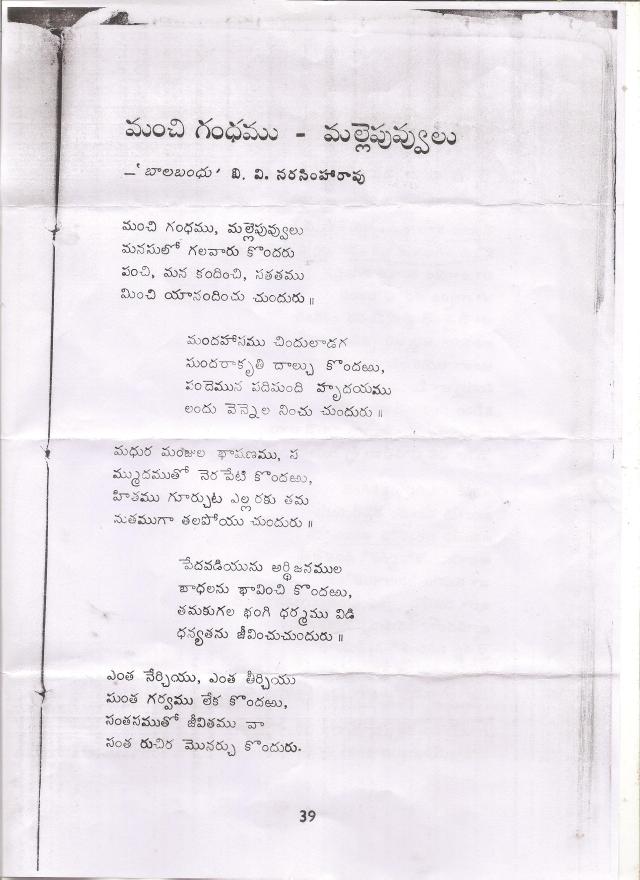 మంచి గంధము - మల్లెపువ్వులు
– 'బాలబంధు' బి. వి. నరసింహారావు
మంచి గంధము, మల్లెపువ్వులు
మనసులో గలవారు కొందరు
పంచి, మన కందించి, సతతము
మించి యానందించు చుందురు ॥
మందహాసము చిందులాడగ
సుందరాకృతి దాల్చు కొందఱు,
పందెమున పదిమంది హృదయము
లందు వెన్నెల నించు చుందురు ॥
మధుర మంజుల భాషణము, స
మ్ముదముతో నెరపేటి కొందఱు,
హితము గూర్చుట ఎల్లరకు తమ
మతముగా తలపోయు చుందురు ॥
పేదవడియును అర్థిజనముల
బాధలను భావించి కొందఱు,
తమకుగల భంగి ధర్మము విడి
ధన్యతను జీవించుచుందురు ॥
ఎంత నేర్చియు, ఎంత తీర్చియు
సుంత గర్వము లేక కొందఱు,
సంతసముతో జీవితము వా
సంత రుచిర మొనర్చు కొందురు.
39